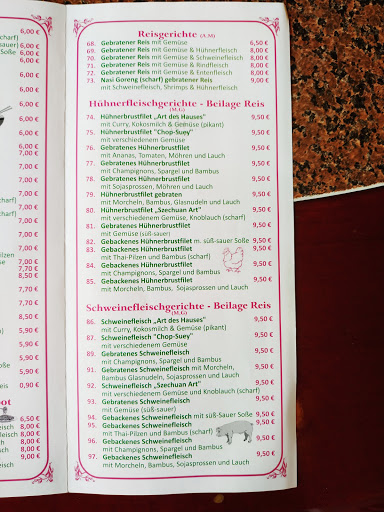 6,00 €
(scharf)
6,00 €
auer) 6,00 €
Soße 6,00 €
6,00 €
6,00 €
6,00 €
6,00 €
6,00 €
6,00 €
6,00 €
6,00 €
6,00 €
arf)
6,00 €
6,00 €
6,00 €
arf)
pilzen
6,00 €
7,00 €
7,70 €
8,50 €
8,50 €
arf)
8,50 €
5,90 €
5,90 €
5,90 €
oße
5,90 €
eis 0,90 €
ot
6,50 €
fleisch 8,00 €
fleisch 8,00 €
eisch 8,00 €
leisch 8,00 €
9,00 €
fleisch
Reisgerichte (A,M)
68. Gebratener Reis mit Gemüse 6,50 €
69. Gebratener Reis mit Gemüse & Hühnerfleisch 8,00 €
70. Gebratener Reis mit Gemüse & Schweinefleisch 8,00 €
71. Gebratener Reis mit Gemüse & Rindfleisch 8,00 €
72. Gebratener Reis mit Gemüse & Entenfleisch 8,00 €
73. Nasi Goreng (scharf) gebratener Reis 9,00 €
mit Schweinefleisch, Shrimps & Hühnerfleisch
Hühnerfleischgerichte - Beilage Reis
(M,G)
74. Hühnerbrustfilet „Art des Hauses" 9,50 €
mit Curry, Kokosmilch & Gemüse (pikant)
75. Hühnerbrustfilet "Chop-Suey" 9,50 €
mit verschiedenem Gemüse
76. Gebratenes Hühnerbrustfilet 9,50 €
mit Ananas, Tomaten, Möhren und Lauch
77. Gebratenes Hühnerbrustfilet 9,50 €
mit Champignons, Spargel und Bambus
78. Gebratenes Hühnerbrustfilet 9,50 €
mit Sojasprossen, Möhren und Lauch
79. Hühnerbrustfilet gebraten 9,50 €
mit Morcheln, Bambus, Glasnudeln und Lauch
80. Hühnerbrustfilet „Szechuan Art" 9,50 €
mit verschiedenem Gemüse, Knoblauch (scharf)
81. Gebratenes Hühnerbrustfilet 9,50 €
mit Gemüse (süß-sauer)
82. Gebackenes Hühnerbrustfilet m. süß-sauer Soße 9,50 €
83. Gebackenes Hühnerbrustfilet 9,50 €
mit Thai-Pilzen und Bambus (scharf)
84. Gebackenes Hühnerbrustfilet 9,50 €
mit Champignons, Spargel und Bambus
85. Gebackenes Hühnerbrustfilet 9,50 €
mit Morcheln, Bambus, Sojasprossen und Lauch
Schweinefleischgerichte - Beilage Reis
(M,G)
86. Schweinefleisch „Art des Hauses" 9,50 €
mit Curry, Kokosmilch & Gemüse (pikant)
87. Schweinefleisch "Chop-Suey" 9,50 €
mit verschiedenem Gemüse
89. Gebratenes Schweinefleisch 9,50 €
mit Champignons, Spargel und Bambus
91. Gebratenes Schweinefleisch mit Morcheln, 9,50 €
Bambus Glasnudeln, Sojasprossen und Lauch
92. Schweinefleisch „Szechuan Art" 9,50 €
mit verschiedenem Gemüse und Knoblauch (scharf)
93. Gebratenes Schweinefleisch 9,50 €
mit Gemüse (süß-sauer)
94. Gebackenes Schweinefleisch mit süß-Sauer Soße 9,50 €
95. Gebackenes Schweinefleisch 9,50 €
mit Thai-Pilzen und Bambus (scharf)
96. Gebackenes Schweinefleisch 9,50 €
mit Champignons, Spargel und Bambus
97. Gebackenes Schweinefleisch 9,50 €
mit Morcheln, Bambus, Sojasprossen und Lauch